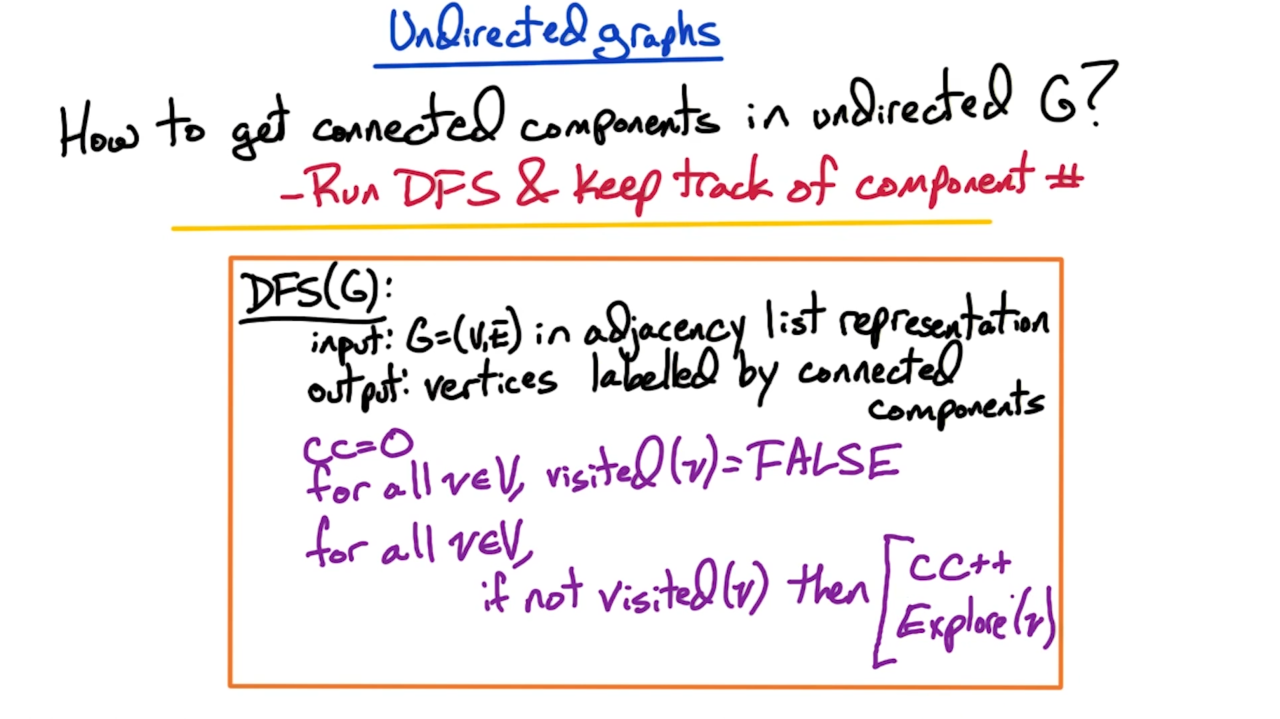 Undirected graphs
How to get connected components in undirected G?
- Run DFS & keep track of component #
DFS(G):
input: G=(V,E) in adjacency list representation
output: vertices labelled by connected
components
cc=0
for all v∈V, visited(v)=FALSE
for all v∈V,
if not visited(v) then
cc++
Explore(v)